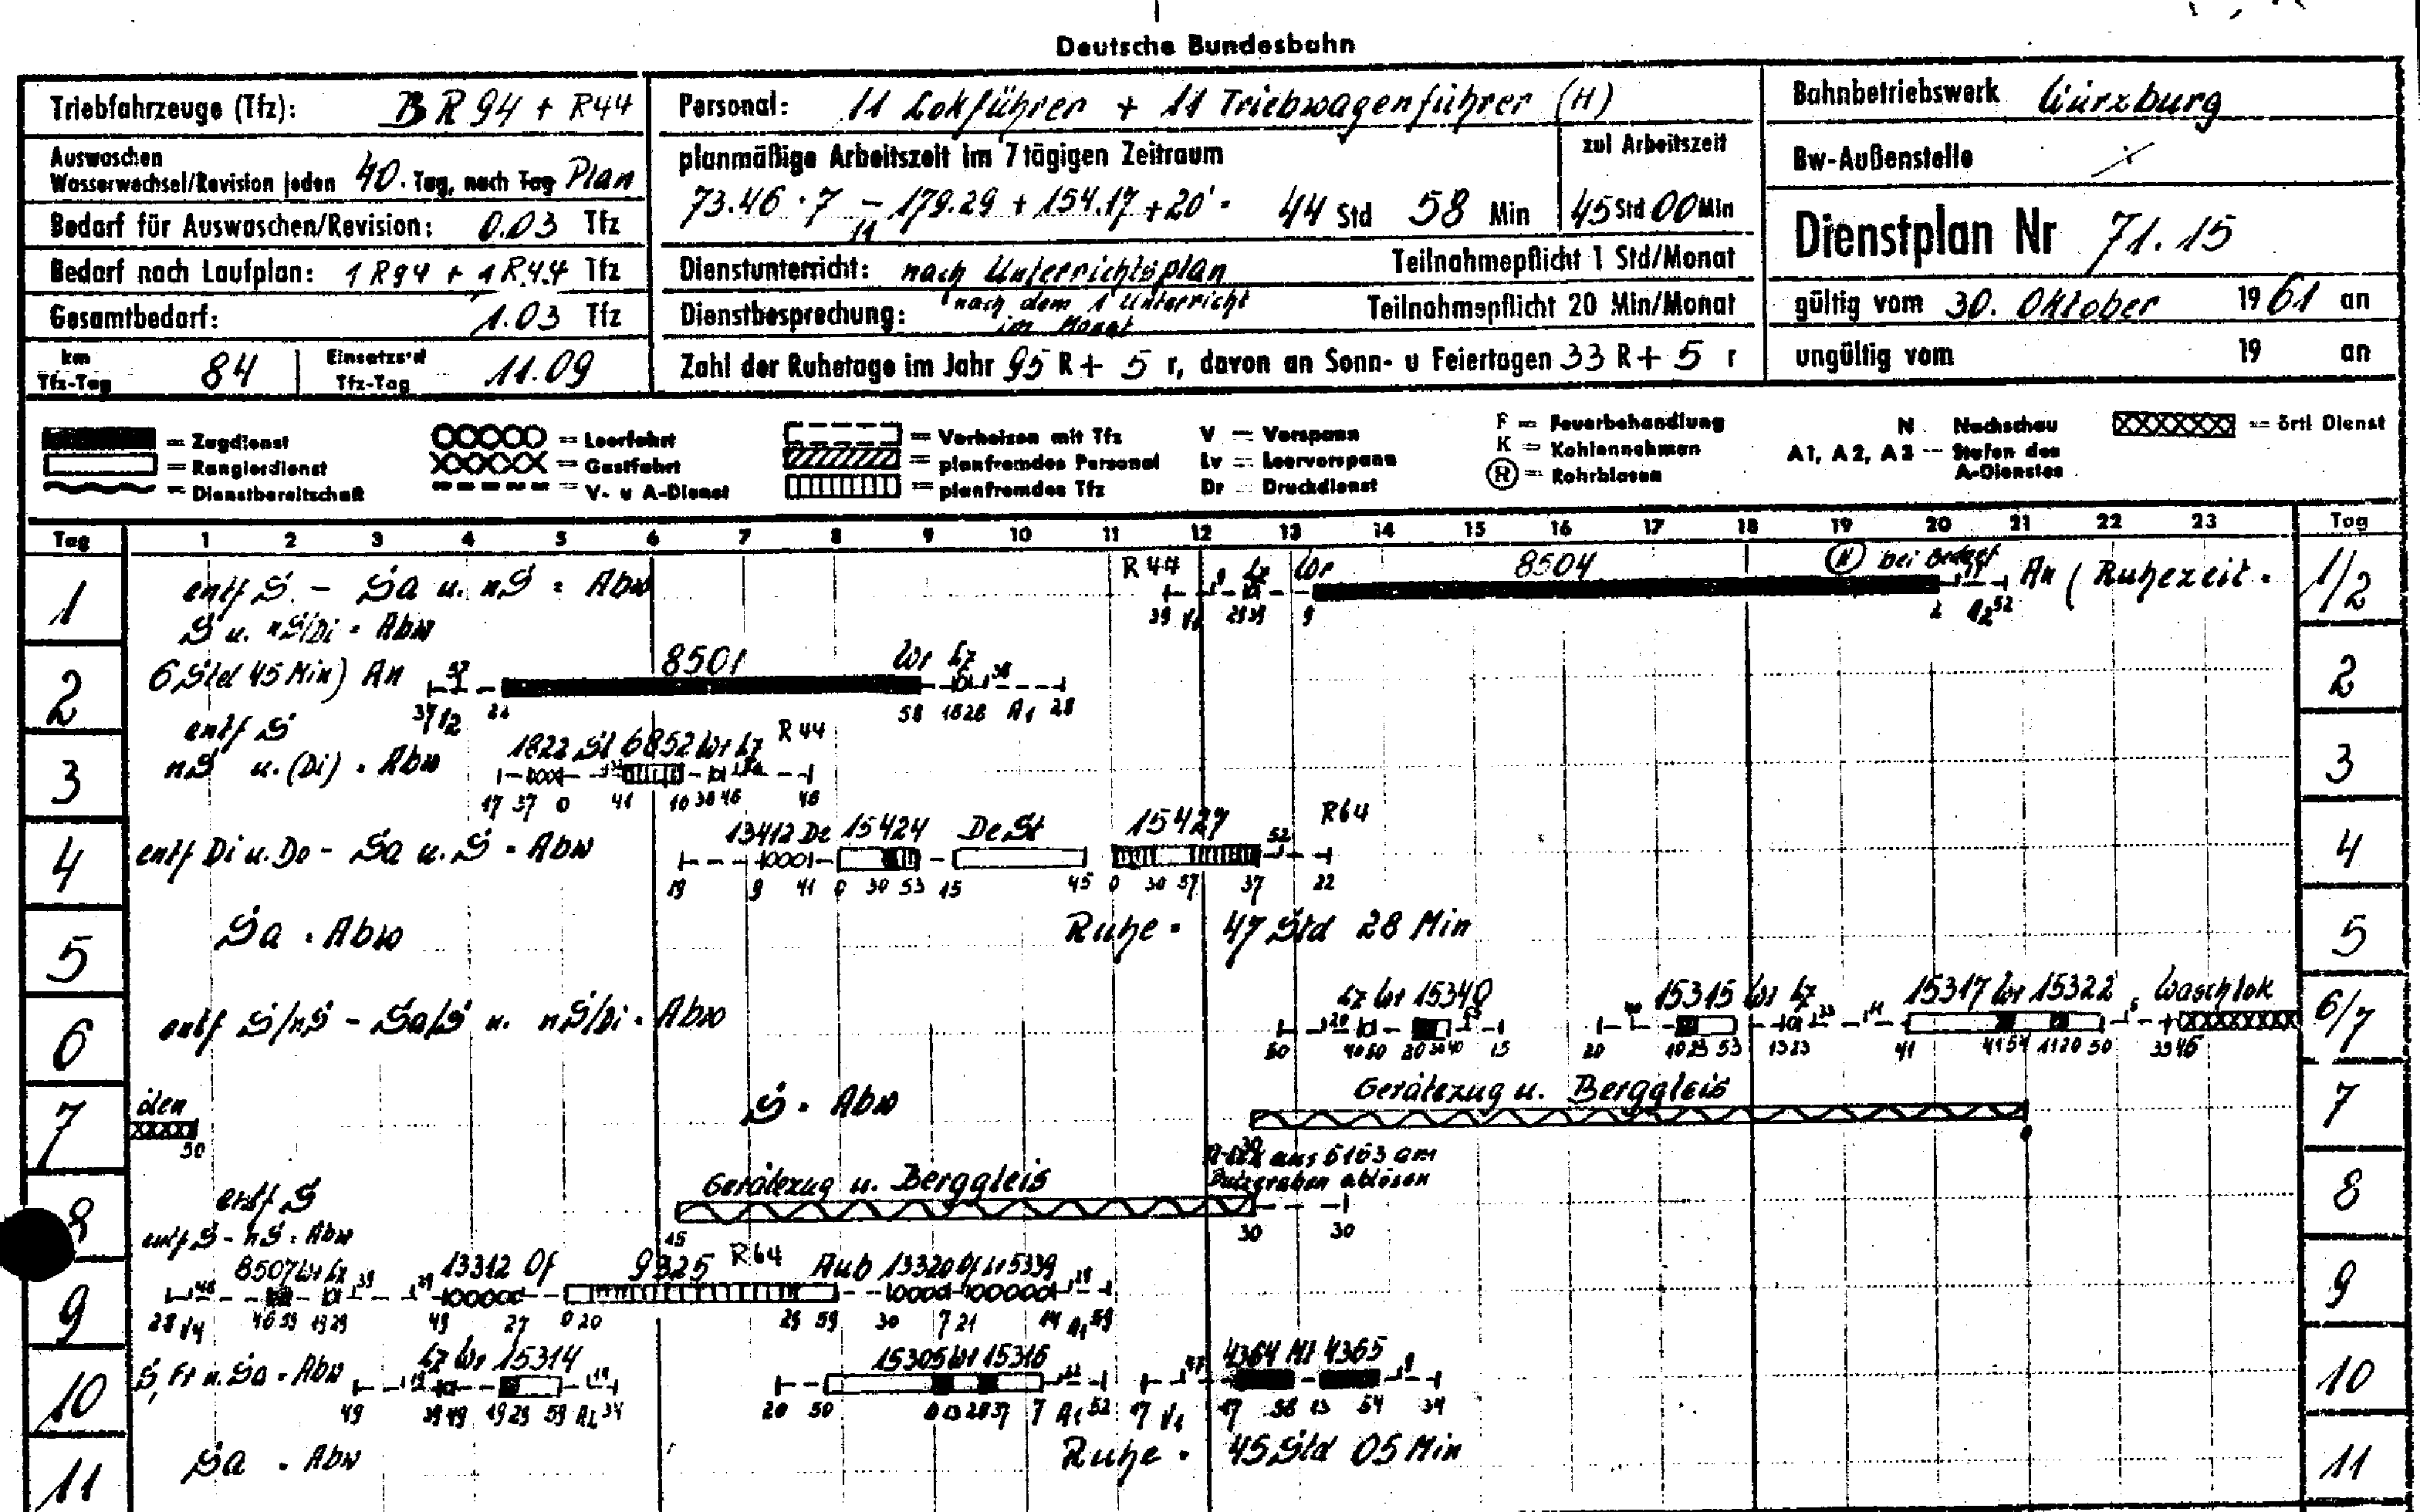 Deutsche Bundesbahn
Triebfahrzeuge (Tfz): BR 94 + R44
Auswaschen
Wasserwechsel/Revision jeden 40. Tag, nach Tag Plan
Bedarf für Auswaschen/Revision: 0.03 Tfz
Bedarf nach Laufplan: 1 R94 + 1 R44 Tfz
Gesamtbedarf: 1.03 Tfz
km
Tfz-Tag 84
Einsatzs'd
Tfz-Tag 11.09
Personal: 11 Lokführer + 11 Triebwagenführer (H)
planmäßige Arbeitszeit im 7 tägigen Zeitraum
zul Arbeitszeit
73.46 · 7 - 179.29 + 154.17 + 20' =
11
44 Std 58 Min
45 Std 00 Min
Dienstunterricht: nach Unterrichtsplan Teilnahmepflicht 1 Std/Monat
Dienstbesprechung: nach dem 1 Unterricht
im Monat
Teilnahmepflicht 20 Min/Monat
Zahl der Ruhetage im Jahr 95 R + 5 r, davon an Sonn- u Feiertagen 33 R + 5 r
Bahnbetriebswerk Würzburg
Bw-Außenstelle
Dienstplan Nr 71.15
gültig vom 30. Oktober 1961 an
ungültig vom 19 an
= Zugdienst
= Rangierdienst
= Dienstbereitschaft
= Leerfahrt
= Gastfahrt
= V- u A-Dienst
= Vorheizen mit Tfz
= planfremdes Personal
= planfremdes Tfz
V = Vorspann
Lv = Leervorspann
Dr = Druckdienst
F = Feuerbehandlung
K = Kohlennehmen
R = Rohrblasen
N Nachschau
A1, A2, A3 -- Stufen des
A-Dienstes
= örtl Dienst
Tag 1 2 3 4 5 6 7 8 9 10 11 12 13 14 15 16 17 18 19 20 21 22 23 Tag
1 entf S. - Sa u. nS = Abw R 44 Lz Wr 8504 bei Bedarf An (Ruhezeit = 1/2
S u. nS/Di = Abw
39 29 39 9 2 A2 52
2 6 Std 45 Min) An 8501 Wr Lz 2
58 18 28 A1 28
entf S
3 nS u. (Di) = Abw 1822 St 6852 Wr Lz R 44 3
17 37 0 41 10 36 46 46
4 entf Di u. Do - Sa u. S = Abw 13412 De 15424 De St 15427 R64 4
19 9 41 0 30 53 15 45 0 30 57 37 22
5 Sa = Abw Ruhe = 47 Std 28 Min 5
6 entf S/nS - Sa/S u. nS/Di = Abw Lz Wr 15340 15315 Wr Lz 15317 Wr 15322 Waschlok 6/7
50 40 50 20 30 40 15 20 10 23 53 13 23 41 41 54 11 20 50 35 46
7 den S = Abw Gerätezug u. Berggleis 7
50
aus 6163 am
Putzgraben ablösen
8 entf S Gerätezug u. Berggleis 8
45 30 30
entf S - nS = Abw
9 8507 Wr Lz 13312 Of 9325 R64 Aub 13320 Of 5339 9
28 V1 46 59 19 29 49 27 0 20 29 59 30 7 21 14 A1 59
10 S, Fr u. Sa = Abw Lz Wr 15314 15305 Wr 15316 4364 4365 10
49 39 49 19 29 59 34 20 50 0 13 28 37 7 A1 52 7 V1 17 58 13 54 34
11 Sa = Abw Ruhe = 45 Std 05 Min 11